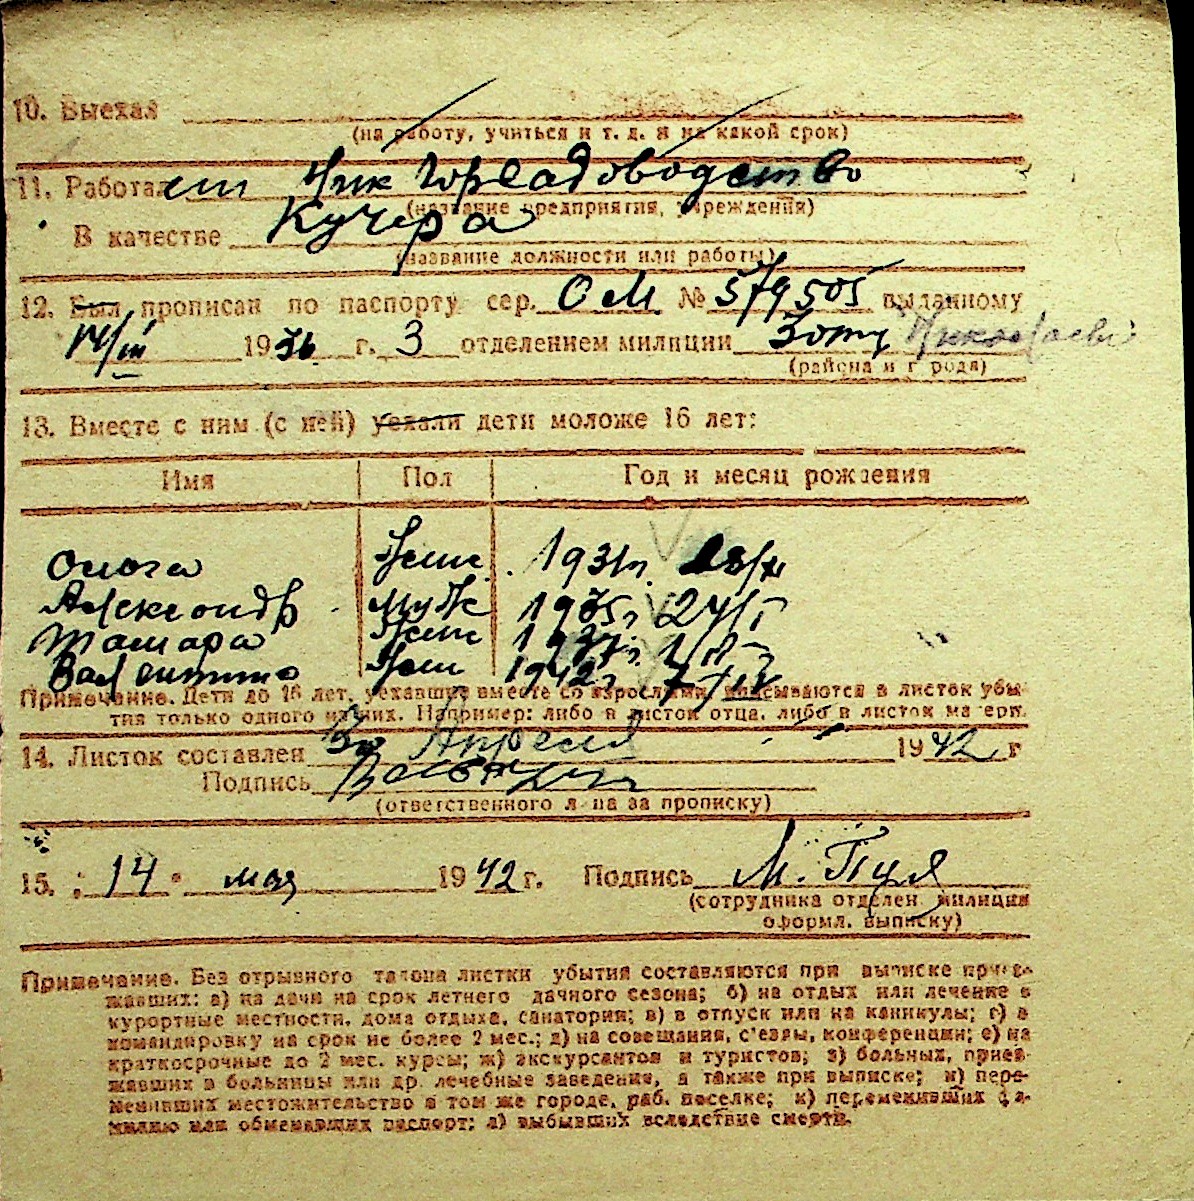 10. Выехал
(на работу, учиться и т. д. и на какой срок)
11. Работает Ник Горсадоводство
(название предприятия, учреждения)
В качестве Кучера
(название должности или работы)
12. Был прописан по паспорту сер. ОМ № 579505 выданному
14/III 1936 г. 3 отделением милиции
(района и города)
13. Вместе с ним (с ней) уехали дети моложе 16 лет:
Имя Пол Год и месяц рождения
Жен. 1931г.
Александр Муж 1935г 24/I
Тамара Жен
Валентина Жен 1942г
Примечание. Дети до 16 лет, уехавшие вместе со взрослыми, вписываются в листок убы-
тия только одного из них. Например: либо в листок отца, либо в листок матери.
14. Листок составлен Апреля 1942 г
Подпись
(ответственного лица за прописку)
15. " 14 " мая 1942 г. Подпись М. Пуя
(сотрудника отделен. милиции
оформл. выписку)
Примечание. Без отрывного талона листки убытия составляются при выписке приез-
жавших: а) на дачи на срок летнего дачного сезона; б) на отдых или лечение в
курортные местности, дома отдыха, санатория; в) в отпуск или на каникулы; г) в
командировку на срок не более 2 мес.; д) на совещания, с'езды, конференции; е) на
краткосрочные до 2 мес. курсы; ж) экскурсантов и туристов; з) больных, приез-
жавших в больницы или др. лечебные заведения, а также при выписке; и) пере-
менивших местожительство в том же городе, раб. поселке; к) переменивших фа-
милию или обменявших паспорт; л) выбывших вследствие смерти.